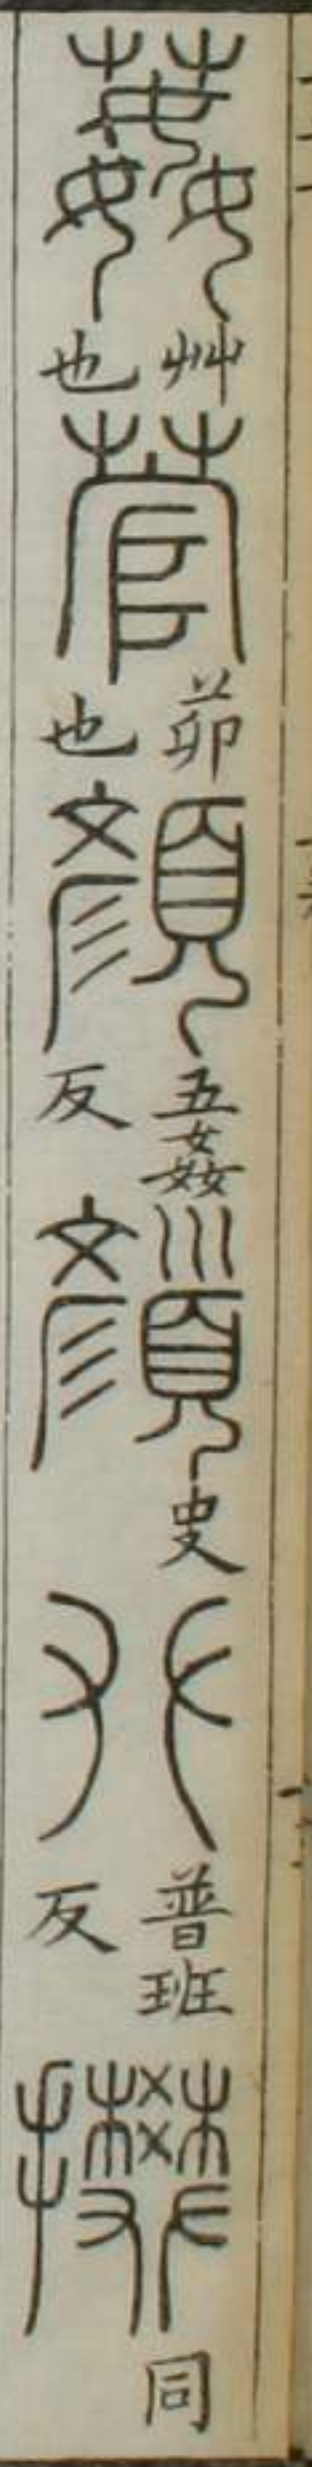 葌艸也菅茆也顏五姦反顏史𠬜普班反攀同